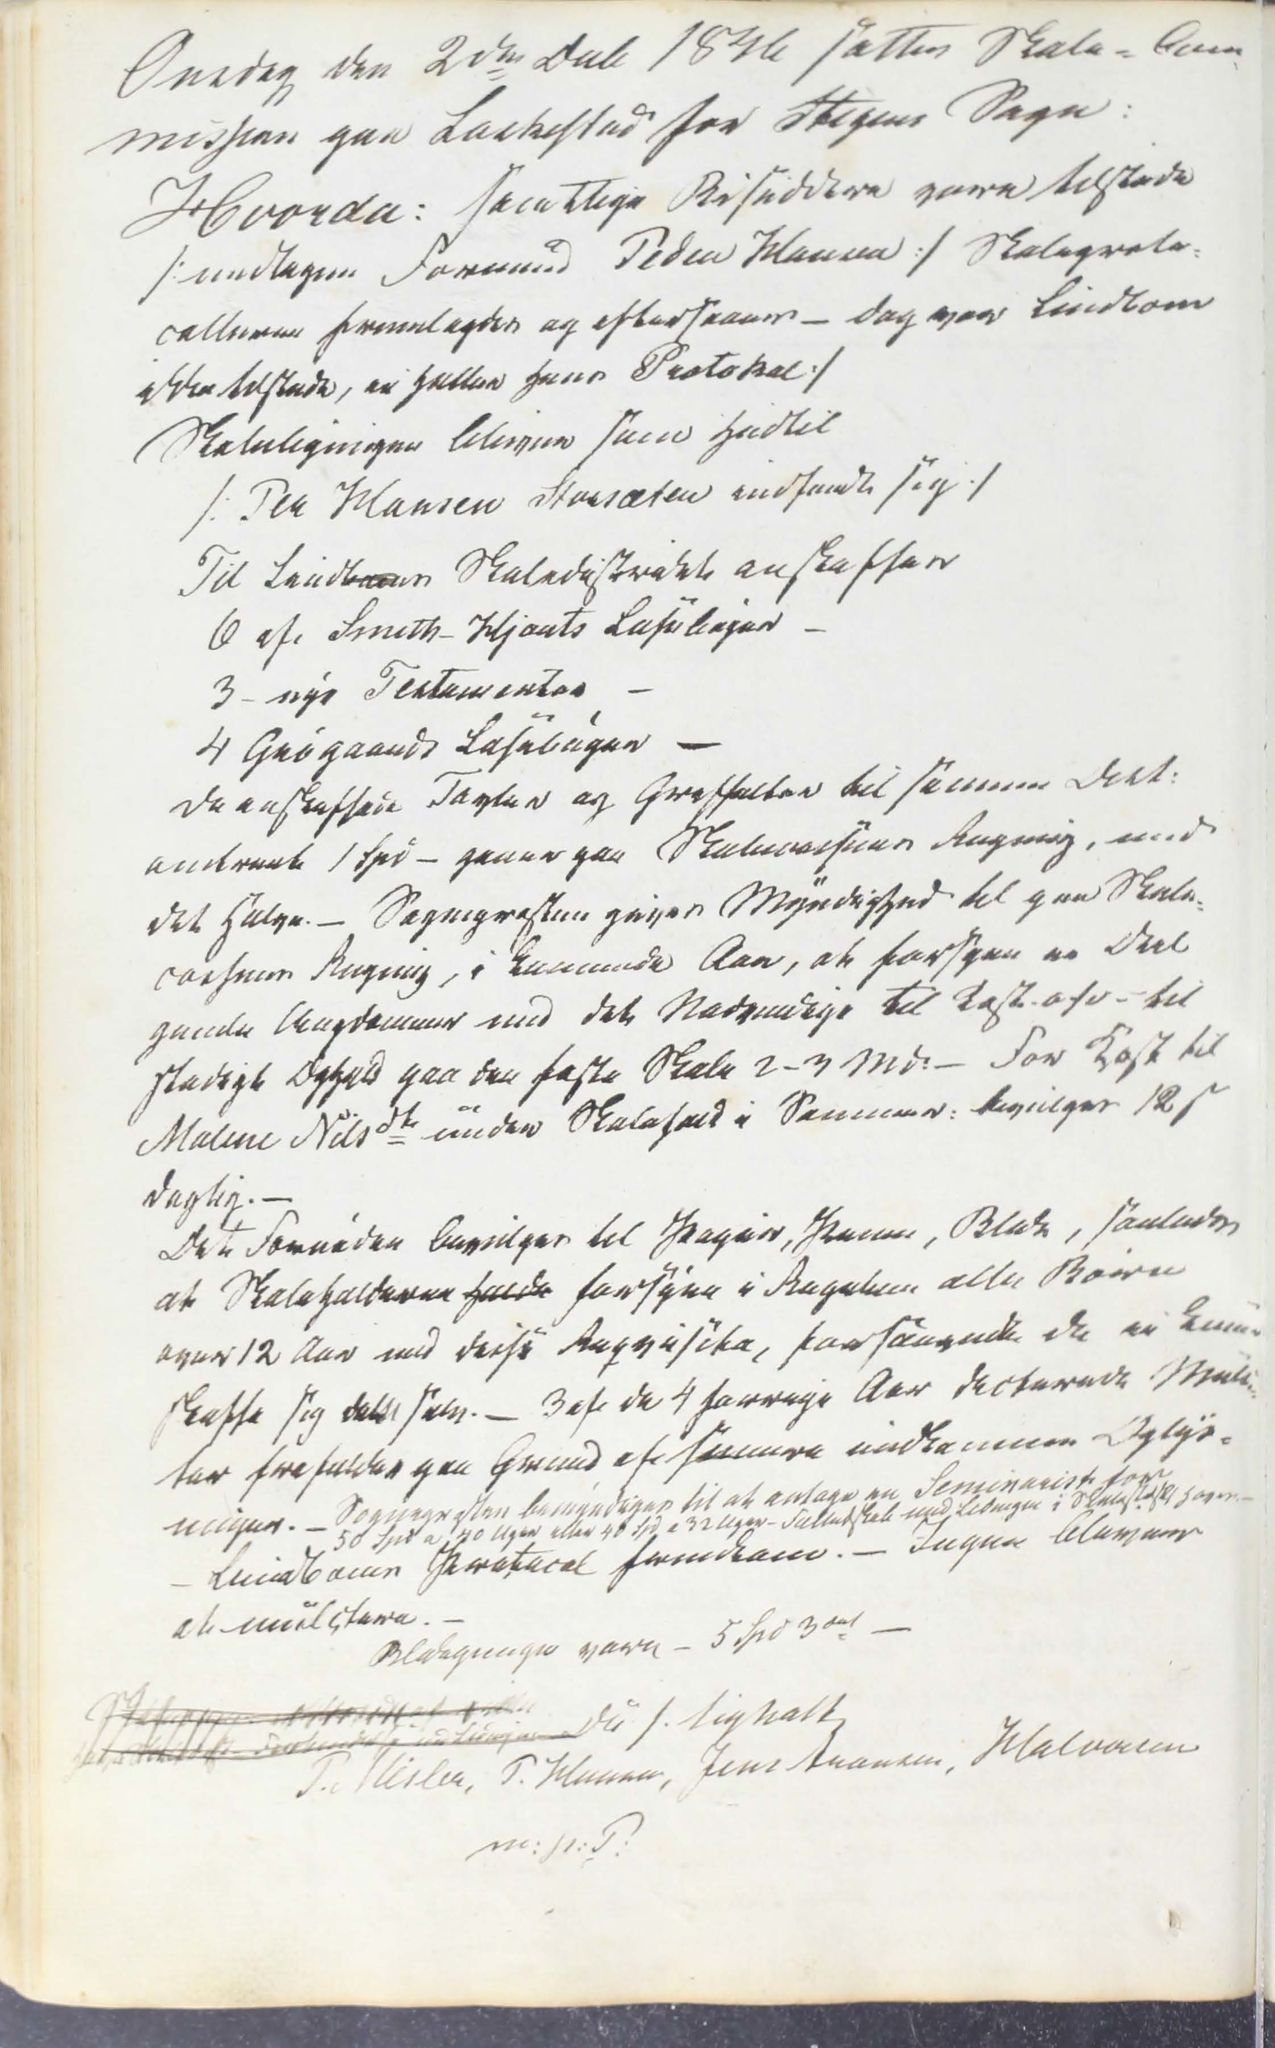 Onsdag den 2den Dcb 1846 sattes Skole-Com
mission paa Laskestad for Stegens Sogn:
Hvorda: samtlige Bisiddere vare tilstede
/: undtagen Formand Peder Hansen :/ Skoleproto-
collerne fremlagdes og eftersaaes – dog var Lindbom
ikke tilstede, ei heller hans Protokol :/
Skoleligningen bliver som hidtil
/: Per Hansen Storsæten indfandt sig :/
Til Lindboms Skoledistrikt anskaffes
6 af Smith-Hjorts Læsebøger –
3 – nye Testamenter –
4 Grøgaards Læsebøger —
De anskaffede Tavler og Griffelter til samme Dist:
omtrent 1 Spd – gaaer paa Skolecassens Regning, med
det halve. – Sognepresten gives Myndighed til paa Skole-
cassens Regning, i kommende Aar, at forsyne en Deel
gamle Ungdommer med det Nødvendige til Kost ofv – til
stadigt Ophold paa den faste Skole 2-3 Md: – For Kost til
Malene Nilsdtr under Skolehold i Sommer: bevilges 12 s
daglig. –
Det Fornødne bevilges til Papir, Penne, Blæk, saaledes
at Skoleholderne holde forsyne i Regelen alle Børn
over 12 Aar med disse Reqvisita, forsaavidt de ei kunne
skaffe sig dem selv. – 3 af de 4 forrige Aar dicterede Mulc-
ter frafaldes paa Grund af senere indkomne Oplys-
ninger. – Sognepresten bemyndiges til at antage en Seminarist for
50 Spd a 40 Uger eller 40 Spd a 32 Uger – Fællesskab med Ledingen i
– Lindboms Protocol fremkom. – Ingen Elever
at mulctere. –
Blækpenge vare – 5 Spd 3 ort –
P. Hansen, Jens Hansen, Halvorsen
m: p: P: